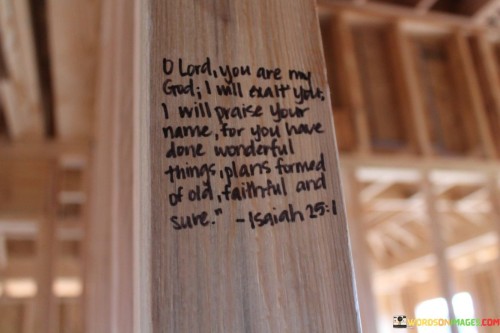 O Lord, you are my
God; I will exalt you;
I will praise your
name, for you have
done wonderful
things, plans formed
of old, faithful and
sure." -Isaiah 25:1
WORDSONIMAGES.COM